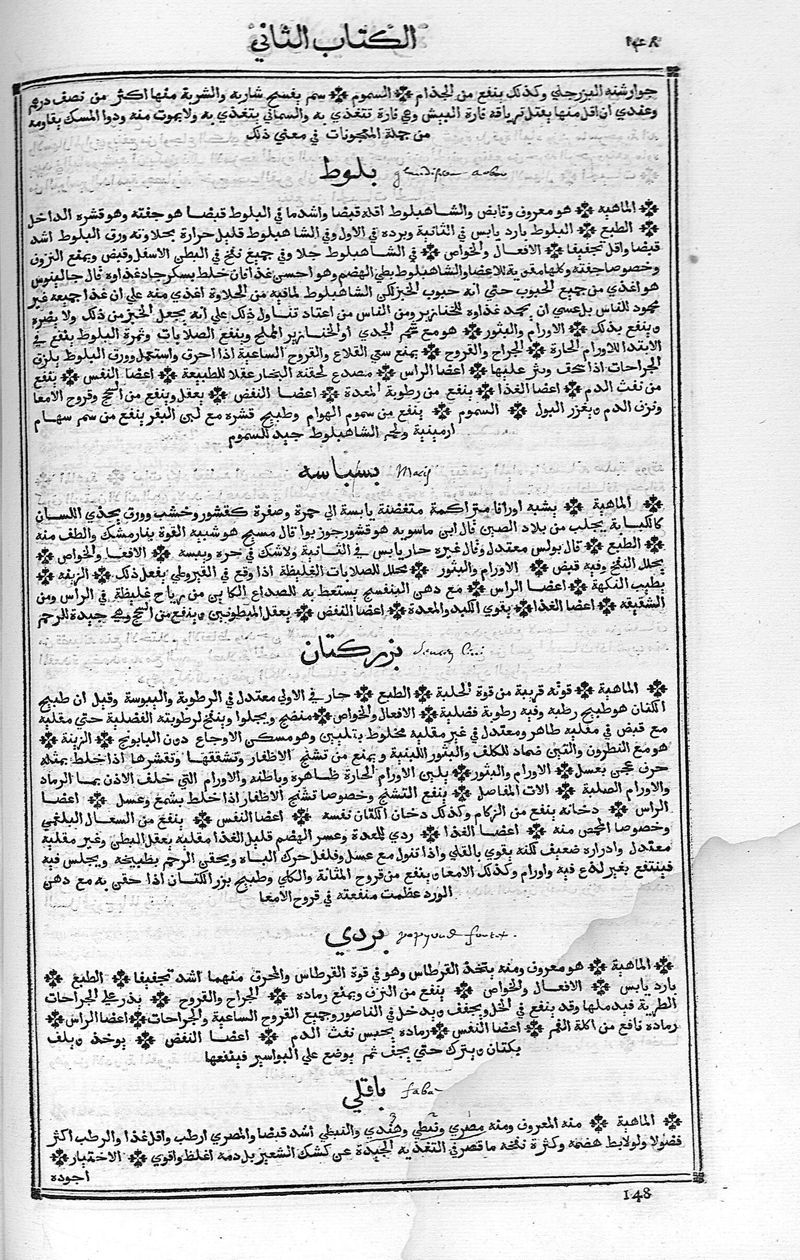 الكتاب الثاني
١٤٨
جوارشنه البزرجلي وكذلك ينفع من الجذام ✤ السموم ✤ سم يفسخ شاربه والشربة منها اكثر من نصف درهم
وعندي ان اقل منها يقتل ترياقه فارة البيش وهي فارة تتغذي به والسماني يتغذي به ولا يموت منه ودوا المسك يقاومه
من جملة المعجونات في معني ذلك
بلوط
✤ الماهية ✤ هو معروف وقابض والشاهبلوط اقله قبضا واشد ما في البلوط قبضا هو جفته وهو قشره الداخل
✤ الطبع ✤ البلوط بارد يابس في الثانية وبرده في الاول وفي الشاهبلوط قليل حرارة لحلاوته ورق البلوط اشد
قبضا واقل تجفيفا ✤ الافعال والخواص ✤ في الشاهبلوط جلا وفي جميع نفخ في البطن الاسفل وقبض ويمنع النزف
وخصوصا جفته وكلها مقوية للاعضا والشاهبلوط بطي الهضم وهو احسن غذا فان خلط بسكر جاد غذاوه قال جالينوس
هو اغذي من جميع الحبوب حتي انه حبوب الخبز لكن الشاهبلوط لما فيه من الحلاوة اغذي منه علي ان غذا جميعه غير
محمود للناس بل عسي ان يحمد غذاوه للخنازير ومن الناس من اعتاد تناول ذلك علي انه يجعل الخبز من ذلك ولا يضره
وينتفع بذلك ✤ الاورام والبثور ✤ هو مع شحم الجدي او الخنازير المملح وينفع الصلابات وثمرة البلوط ينفع في
الابتدا للاورام الحارة ✤ الجراح والقروح ✤ يمنع سعي القلاع والقروح الساعية اذا احرق واستعمل وورق البلوط يلزق
الجراحات اذا سحق ونثر عليها ✤ اعضا الراس ✤ مصدع لحقنه البخار عقلا للطبيعة ✤ اعضا النفس ✤ ينفع
من نفث الدم ✤ اعضا الغذا ✤ ينفع من رطوبة المعدة ✤ اعضا النفض ✤ يعقل وينفع من السحج وقروح الامعا
ونزف الدم ويغزر البول ✤ السموم ✤ ينفع من سموم الهوام وطبيخ قشره مع لبن البقر ينفع من سم سهام
ارمينية ولحم الشاهبلوط جيد للسموم
بسباسه Macis
✤ الماهية ✤ يشبه اوراقا متراكمة متغضنة يابسة الي حمرة وصفرة كقشور وخشب وورق يحذي اللسان
كالكبابة يجلب من بلاد الصين قال ابن ماسويه هو قشور جوزبوا قال مسيح هو شبيه القوة بنارمشك والطف منه
✤ الطبع ✤ قال بولس معتدل وقال غيره حار يابس في الثانية ولا شك في حره ويبسه ✤ الافعا والخواص ✤
يحلل النفخ وفيه قبض ✤ الاورام والبثور ✤ محلل للصلابات الغليظة اذا وقع في القيروطي يفعل ذلك ✤ الزينه ✤
يطيب النكهة ✤ اعضا الراس ✤ مع دهن البنفسج يستعط به للصداع الكاين من رياح غليظة في الراس ومن
الشقيقه ✤ اعضا الغذا ✤ يقوي الكبد والمعدة ✤ اعضا النفض ✤ يعقل المبطونين وينفع من السحج وهي جيدة للرحم
بزركتان
✤ الماهية ✤ قوته قريبة من قوة الحلبة ✤ الطبع ✤ حار في الاولي معتدل في الرطوبة واليبوسة وقيل ان طبيخ
الكتان هو طبيخ رطبه وفيه رطوبة فضلية ✤ الافعال والخواص ✤ منضج ويجلوا وينفخ لرطوبته الفضلية حتي مقليه
مع قبض في مقليه ظاهر ومعتدل في غير مقليه مخلوط بتليين وهو مسكن الاوجاع دون البابونج ✤ الزينة ✤
هو مع النطرون والتين ضماد للكلف والبثور اللبنية ويمنع من تشنج الاظفار وتشققها وتقشرها اذا خلط بمثله
حرف عجن بعسل ✤ الاورام والبثور ✤ يلين الاورام الحارة ظاهره وباطنه والاورام التي خلف الاذن بما الرماد
والاورام الصلبة ✤ الات المفاصل ✤ ينفع التشنج وخصوصا تشنج الاظفار اذا خلط بشمع وعسل ✤ اعضا
الراس ✤ دخانه ينفع من الزكام وكذلك دخان الكتان نفسه ✤ اعضا النفس ✤ ينفع من السعال البلغمي
وخصوصا المحمص منه ✤ اعضا الغذا ✤ ردي للمعدة وعسر الهضم قليل الغذا مقليه يعقل البطن وغير مقليه
معتدل وادراره ضعيف لكنه يقوي بالقلي واذا تنول مع عسل وفلفل حرك الباه ويحقن الرحم بطبيخه ويجلس فيه
فينتفع بغير لذع فيه واورام وكذلك الامعا وينفع من قروح المثانة والكلي وطبيخ بزر الكتان اذا حقن به مع دهن
الورد عظمت منفعته في قروح الامعا
بردي
✤ الماهية ✤ هو معروف ومنه يتخذ القرطاس وهو في قوة القرطاس والمحرق منهما اشد تجفيفا ✤ الطبع ✤
بارد يابس ✤ الافعال والخواص ✤ ينفع من النزف ويمنع رماده ✤ الجراح والقروح ✤ يذر علي الجراحات
الطرية فيدملها وقد ينقع في الخل ويجفف ويدخل في الناصور وجميع القروح الساعية والجراحات ✤ اعضا الراس ✤
رماده نافع من اكلة الفم ✤ اعضا النفس ✤ رماده يحبس نفث الدم ✤ اعضا النفض ✤ يوخذ ويلف
بكتان ويترك حتي يجف ثم يوضع علي البواسير فينفعها
باقلي faba
✤ الماهية ✤ منه المعروف ومنه مصري ونبطي وهندي والنبطي اشد قبضا والمصري ارطب واقل غذا والرطب اكثر
فضولا ولولا بط هضمه وكثرة نفخه ما قصر في التغذيه الجيدة عن كشك الشعير بل دمه اغلظ واقوي ✤ الاختيار ✤
اجوده
148